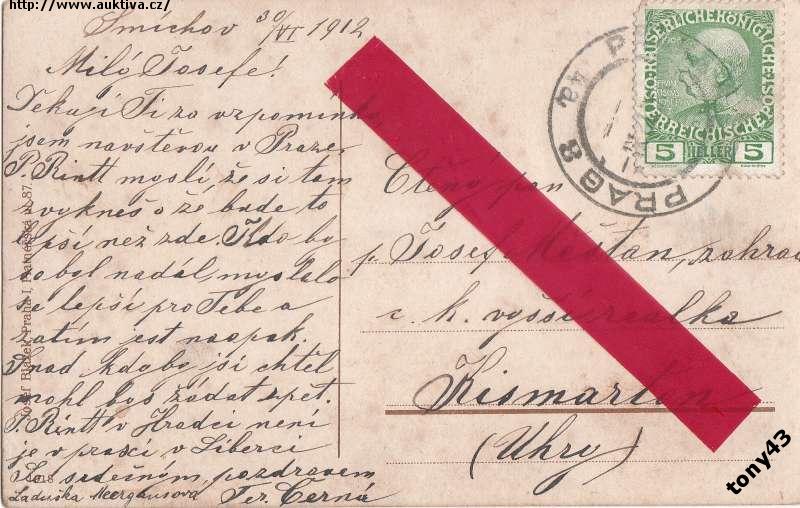 http://www.auktiva.cz/
Smíchov 30/VI 1912
Milý Josefe!
Děkuji Ti za vzpomínku
jsem návštěvou v Praze
P. Rintt myslí, že si tam
zvykneš a že bude to
lepší než zde. Kdo by
se byl nadál, myslelo
se lepší pro Tebe a
zatím jest naopak.
Snad kdyby jsi chtěl
mohl bys žádat zpět.
P. Rintt v Hradci není
je v praxi v Liberci
Se srdečným pozdravem
Laduška Ter. Černá
Josef Bláček, Praha I, 87.
Ctěný pan
p. Josef Měšťan, zahrad
c. k. vyšší realka
Kismarton
(Uhry)
PRAG 8
5 HELLER 5
tony43